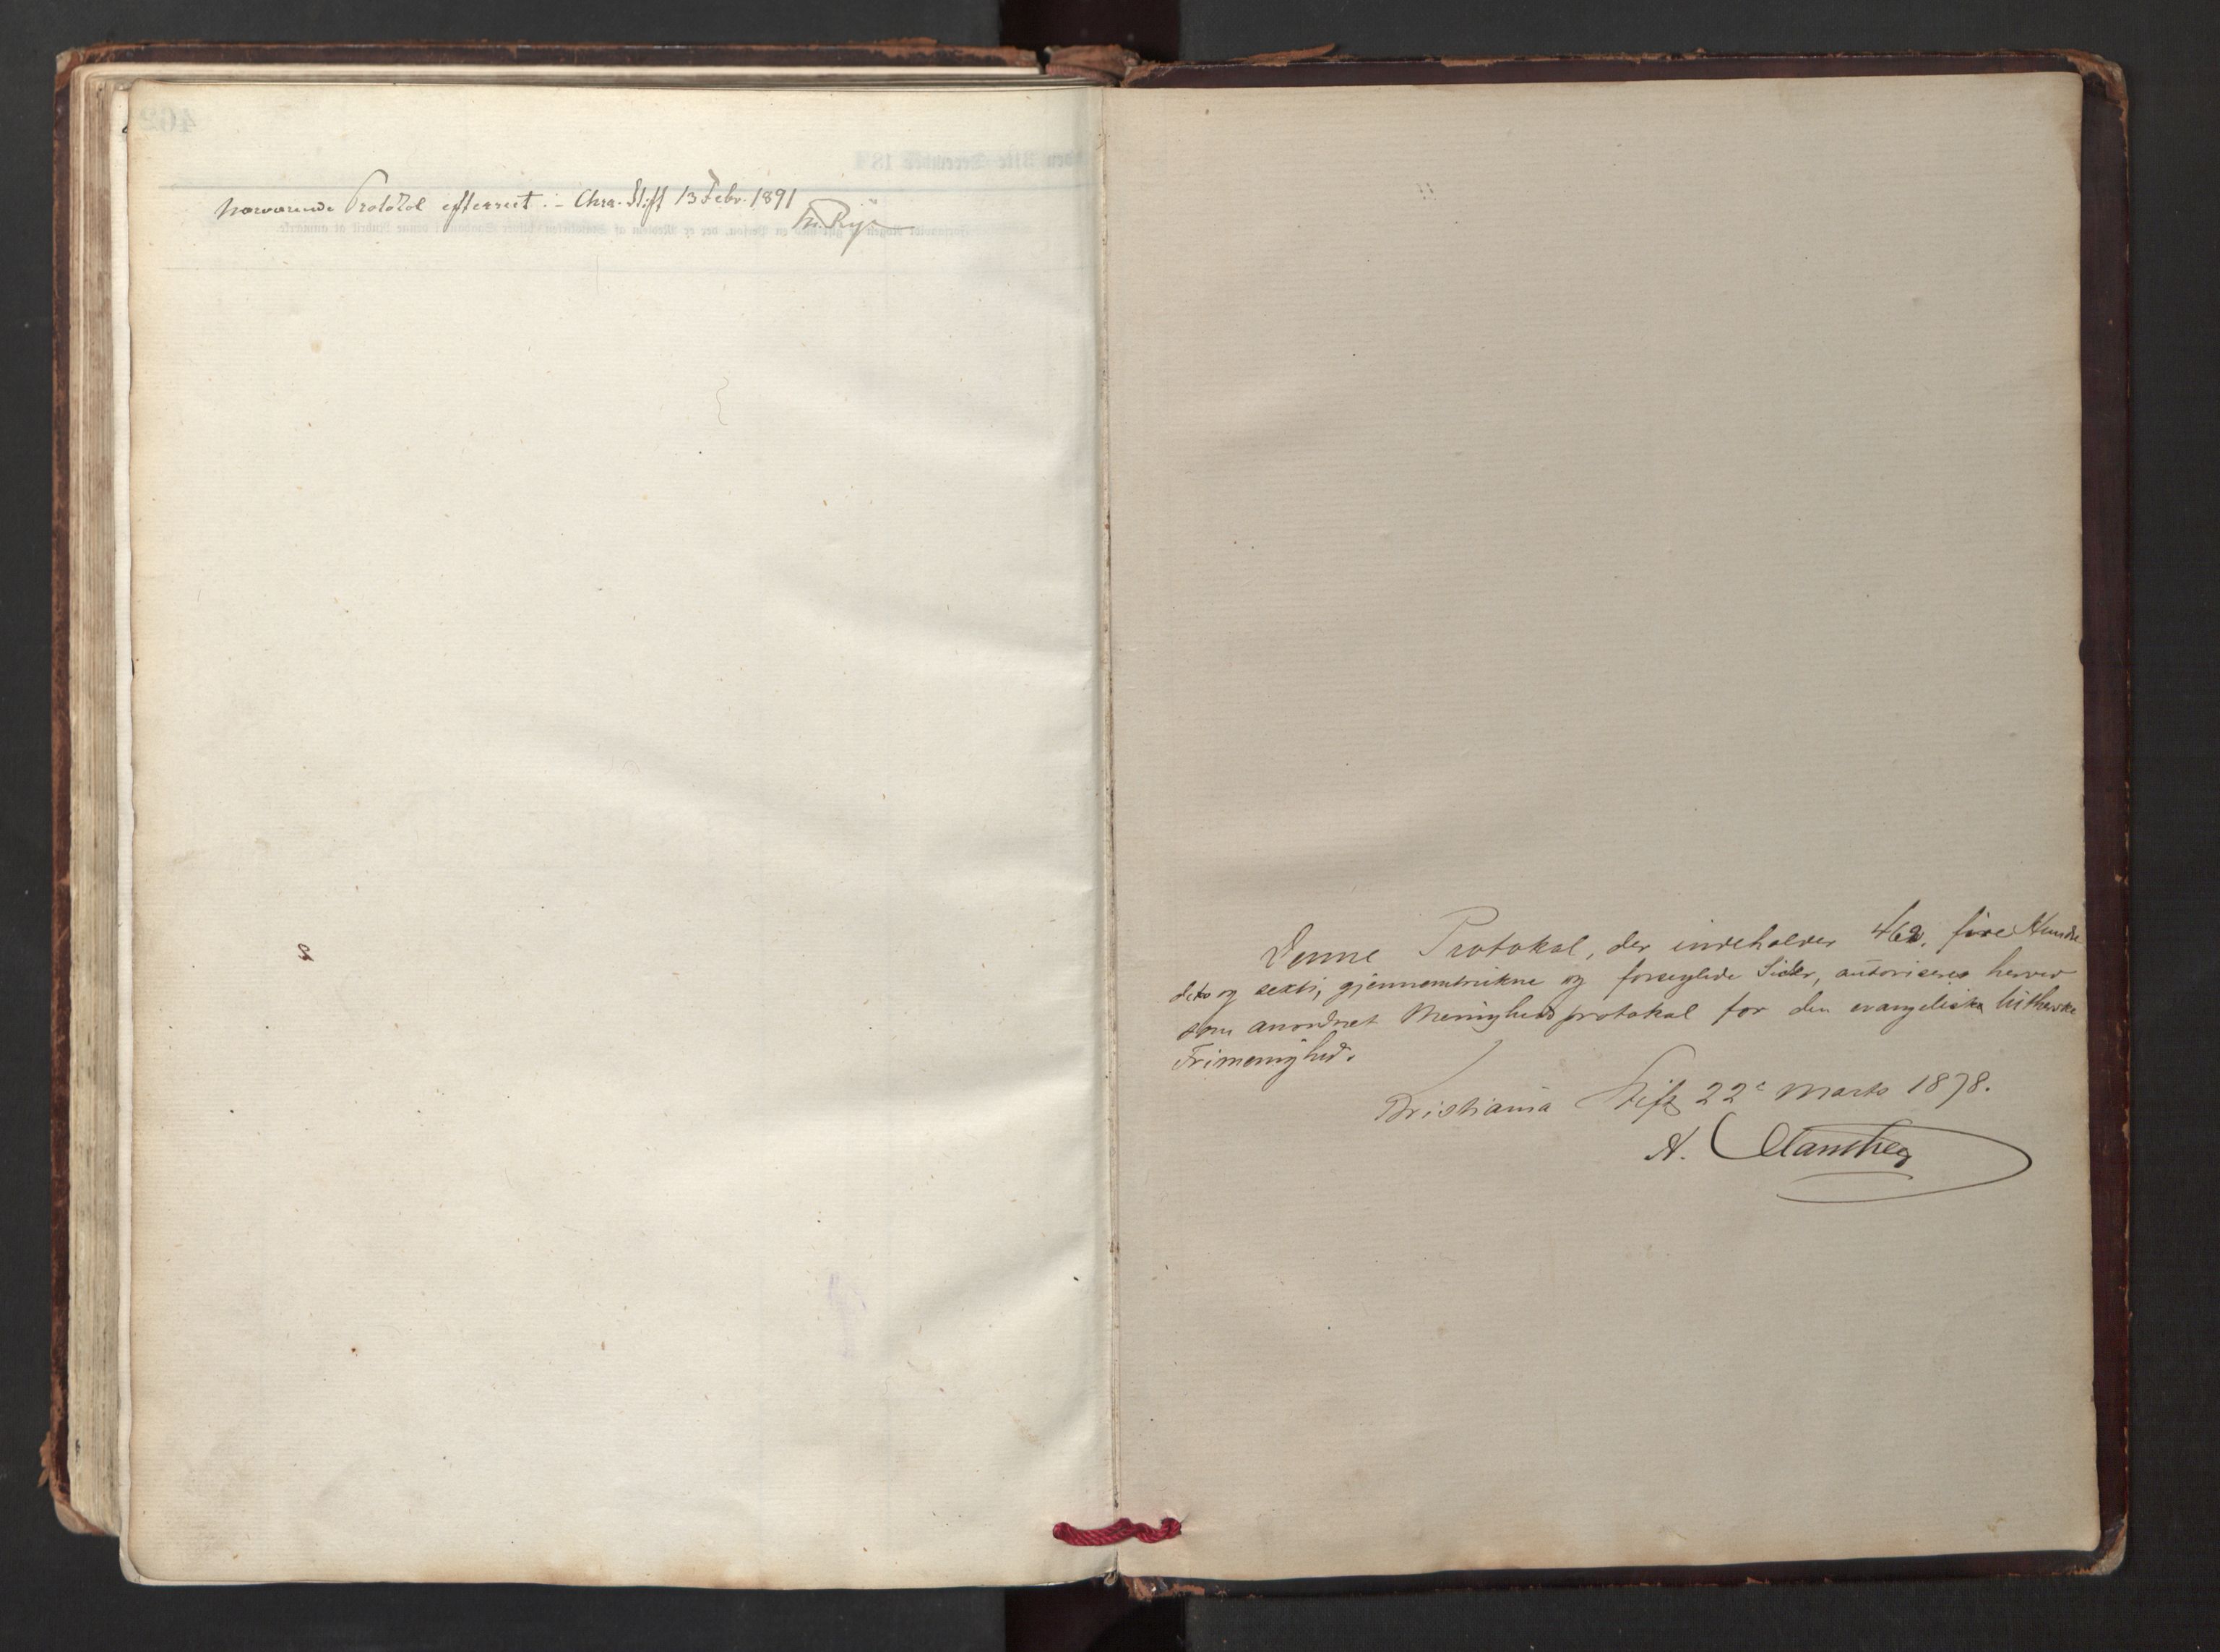 Nærværende Protokol efterseet :- Chra. Stift 13 Febr. 1891
Denne Protokol, der indeholder 462, fire Hundre
de to og sexti, gjennemtrukne og forseglede Sider, autoriseres herved
som anordnet Menighedsprotokol for den evangelisk lutherske
Frimenighed.
Kristiania Stift 22de Marts 1878.